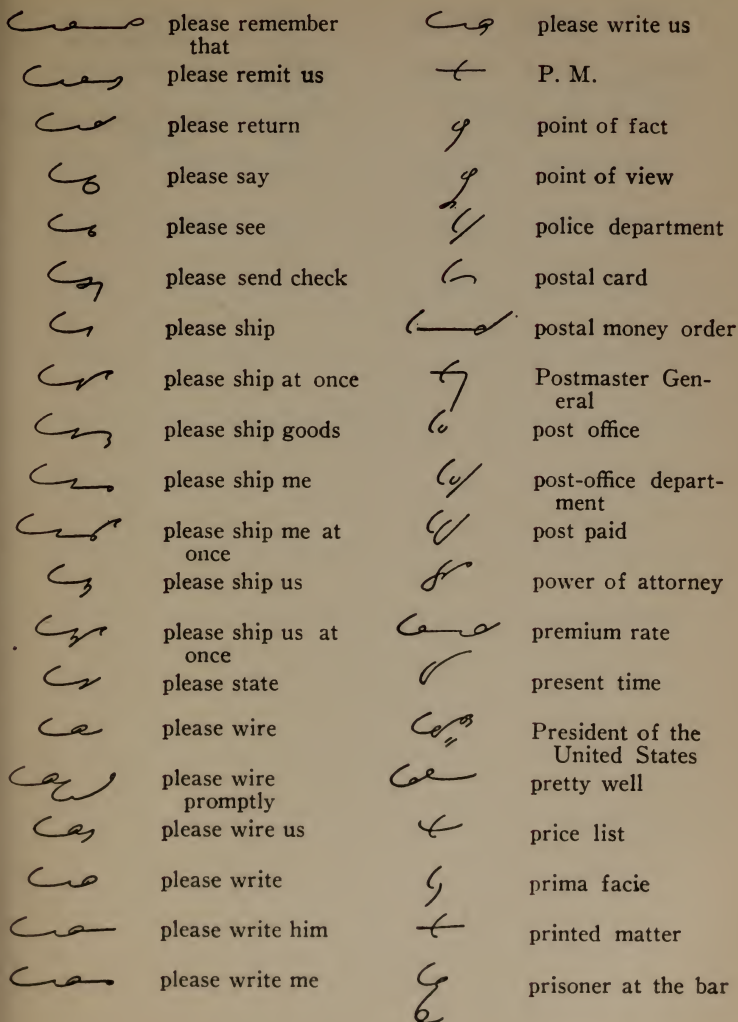 please remember
that
please remit us
please return
please say
please see
please send check
please ship
please ship at once
please ship goods
please ship me
please ship me at
once
please ship us
please ship us at
once
please state
please wire
please wire
promptly
please wire us
please write
please write him
please write me
please write us
P. M.
point of fact
point of view
police department
postal card
postal money order
Postmaster Gen-
eral
post office
post-office depart-
ment
post paid
power of attorney
premium rate
present time
President of the
United States
pretty well
price list
prima facie
printed matter
prisoner at the bar